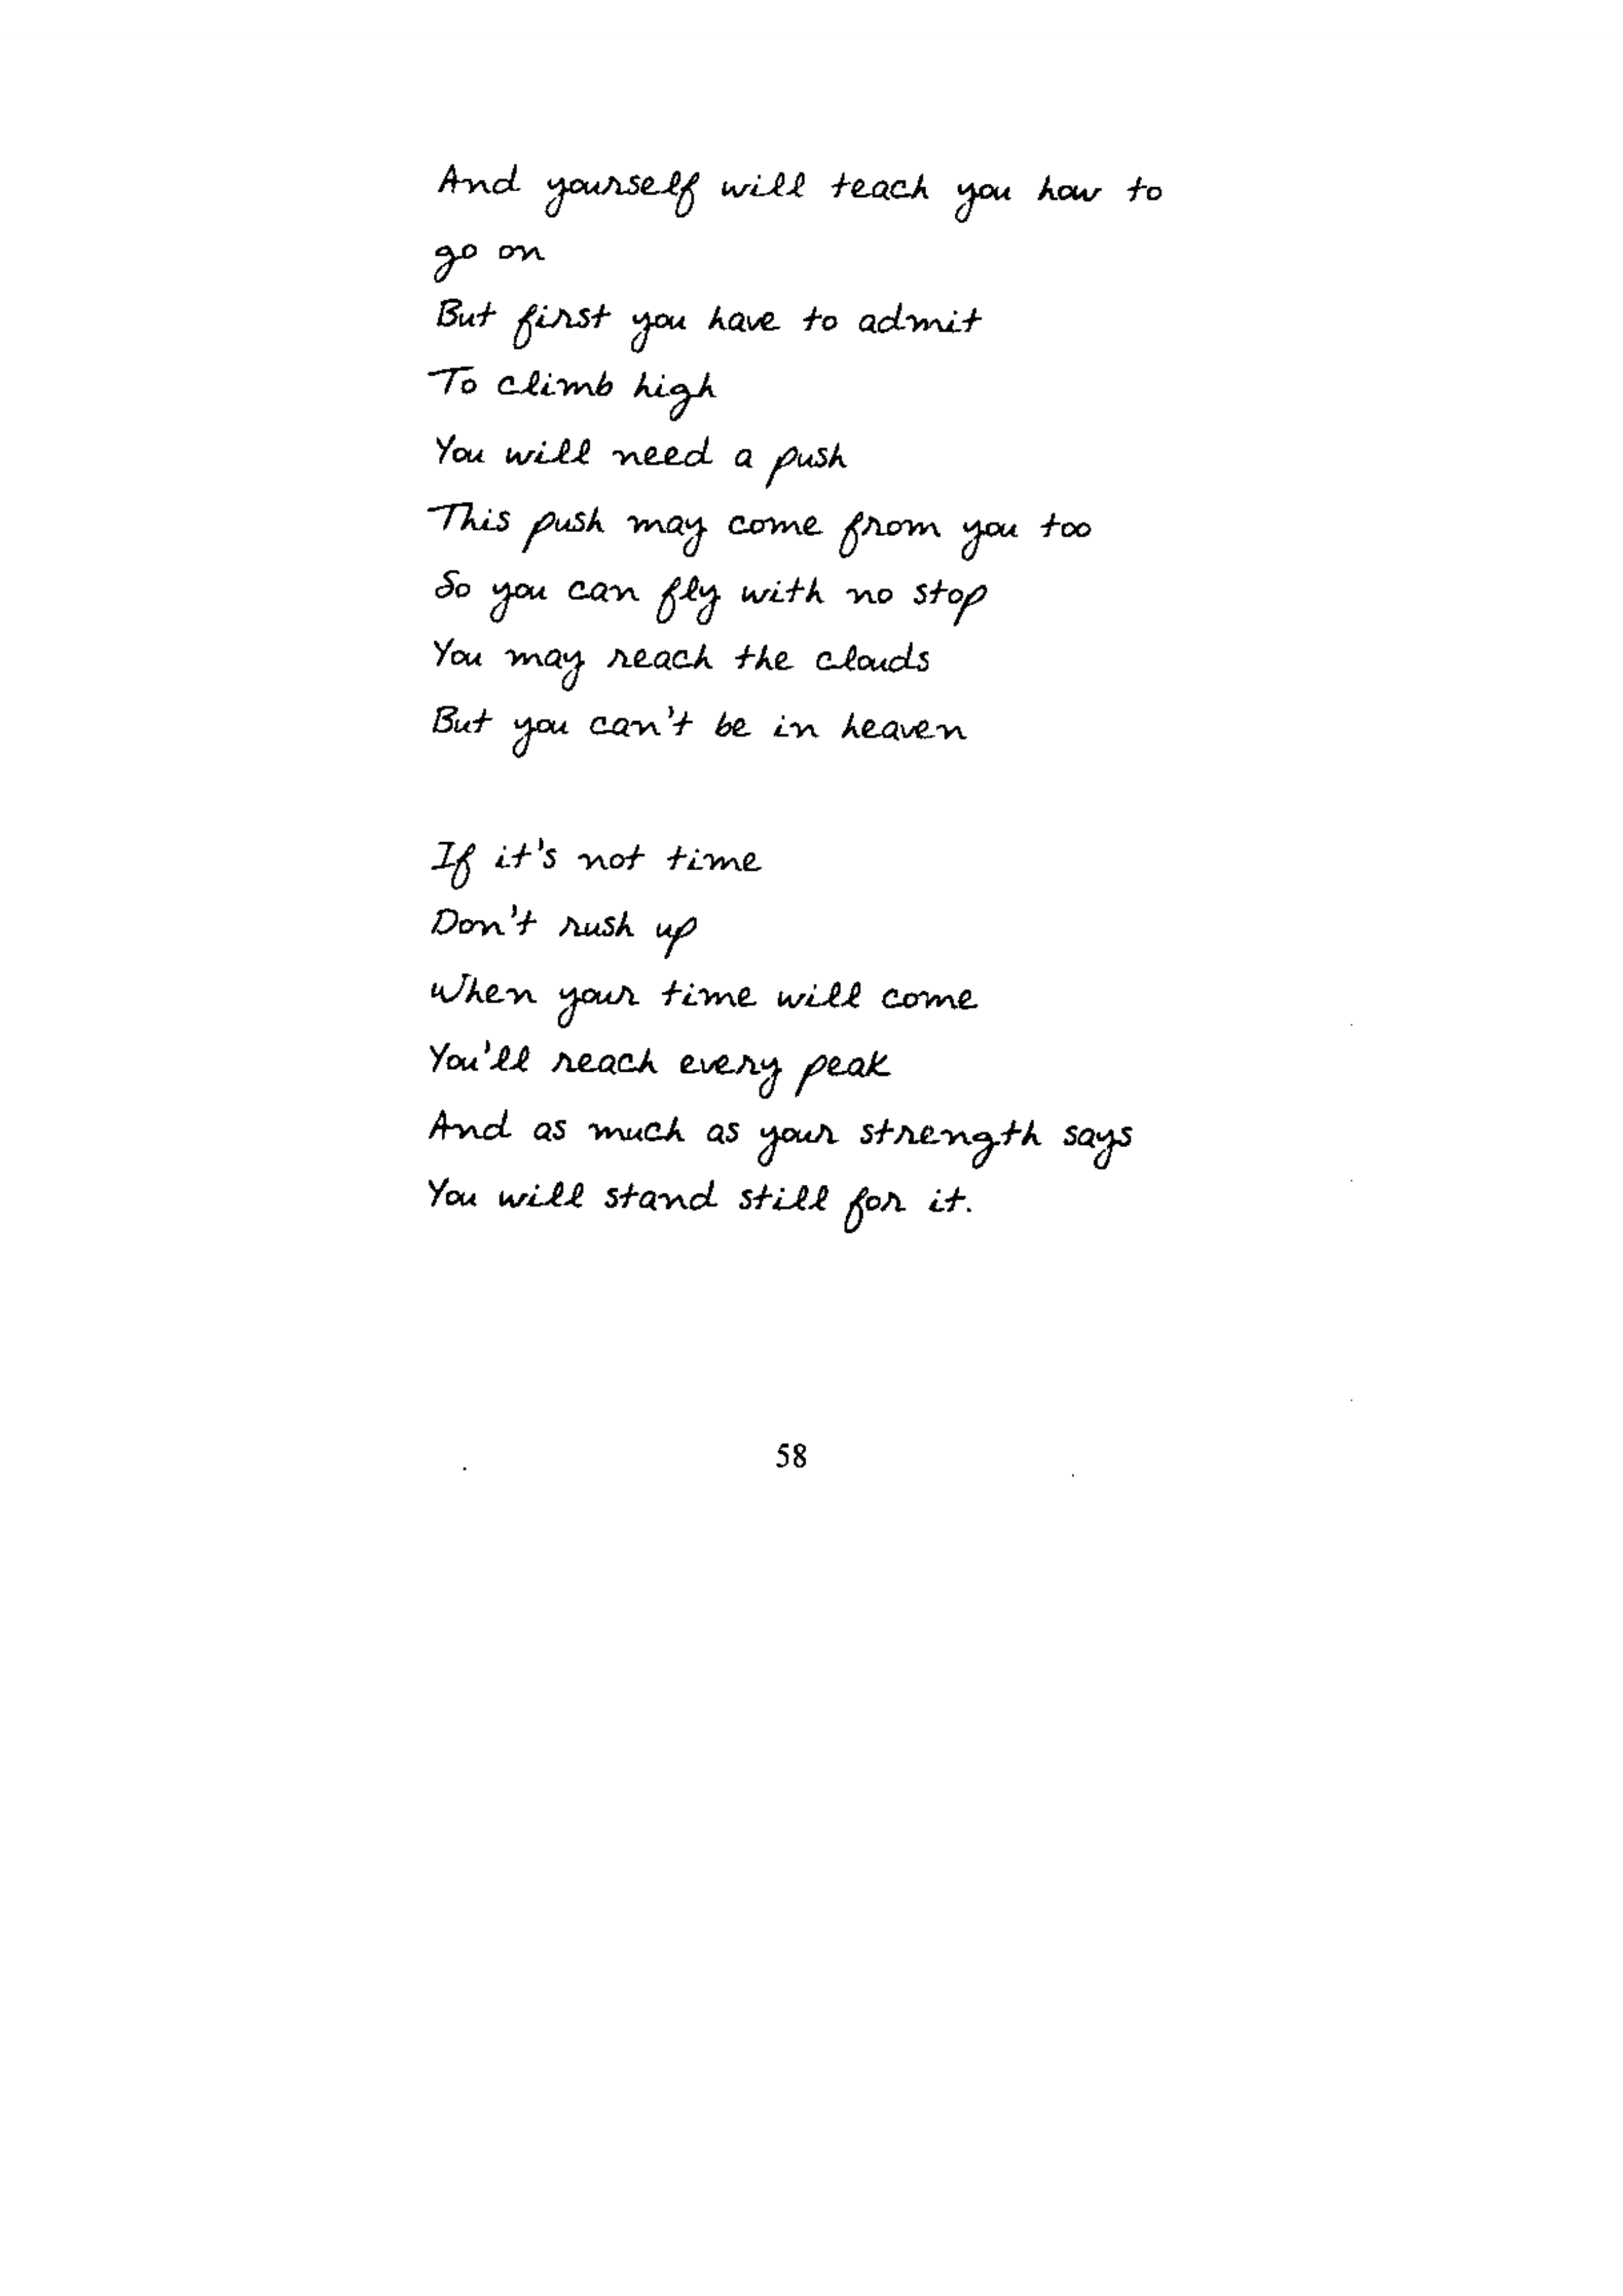 And yourself will teach you how to
go on
But first you have to admit
To climb high
You will need a push
This push may come from you too
So you can fly with no stop
You may reach the clouds
But you can't be in heaven
If it's not time
Don't rush up
When your time will come
You'll reach every peak
And as much as your strength says
You will stand still for it.
58